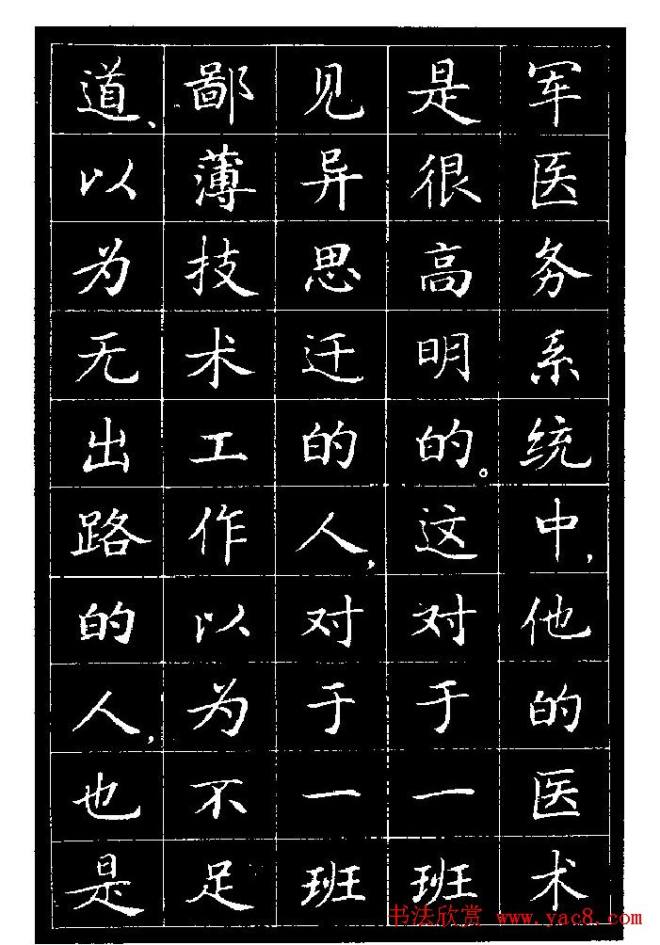 军医务系统中，他的医术
是很高明的。这对于一班
见异思迁的人，对于一班
鄙薄技术工作以为不足
道、以为无出路的人，也是
书法欣赏 www.yac8.com